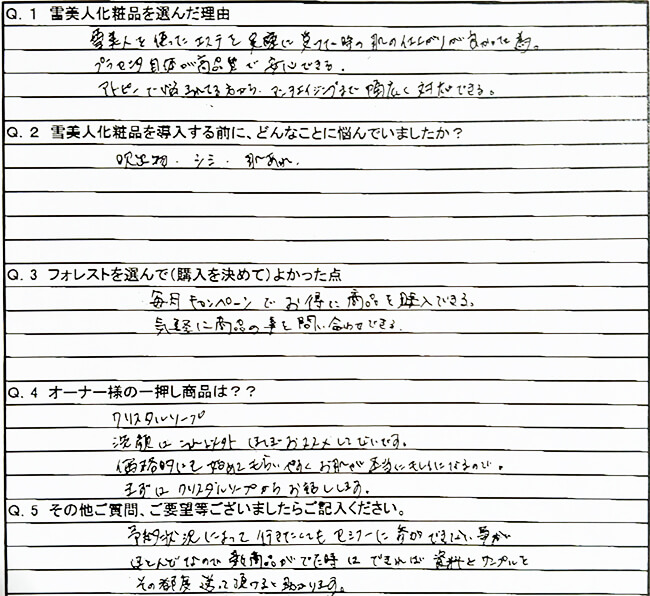 Q. 1 雪美人化粧品を選んだ理由
雪美人を使ったエステを実際に受けた時の肌の仕上がりが良かった為。
プラセンタ自体が高品質で安心できる。
アトピーで悩まれてる方から、アンチエイジングまで幅広く対応できる。
Q. 2 雪美人化粧品を導入する前に、どんなことに悩んでいましたか？
吹出物・シミ・肌あれ。
Q. 3 フォレストを選んで（購入を決めて）よかった点
毎月キャンペーンでお得に商品を購入できる。
気軽に商品の事を問い合わせできる。
Q. 4 オーナー様の一押し商品は？？
クリスタルソープ
洗顔は ほぼおススメしています。
価格的にも始めてもらいやすくお肌が本当にキレイになるので。
まずはクリスタルソープからお話しします。
Q. 5 その他ご質問、ご要望等ございましたらご記入ください。
予約状況によって行きたくてもセミナーに参加できない事が
ほとんどなので新商品がでた時はできれば資料とサンプルを
その都度送って頂けると助かります。